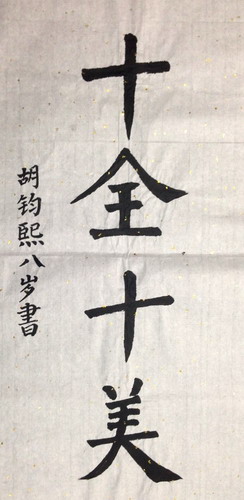 十全十美
胡钧熙八岁書